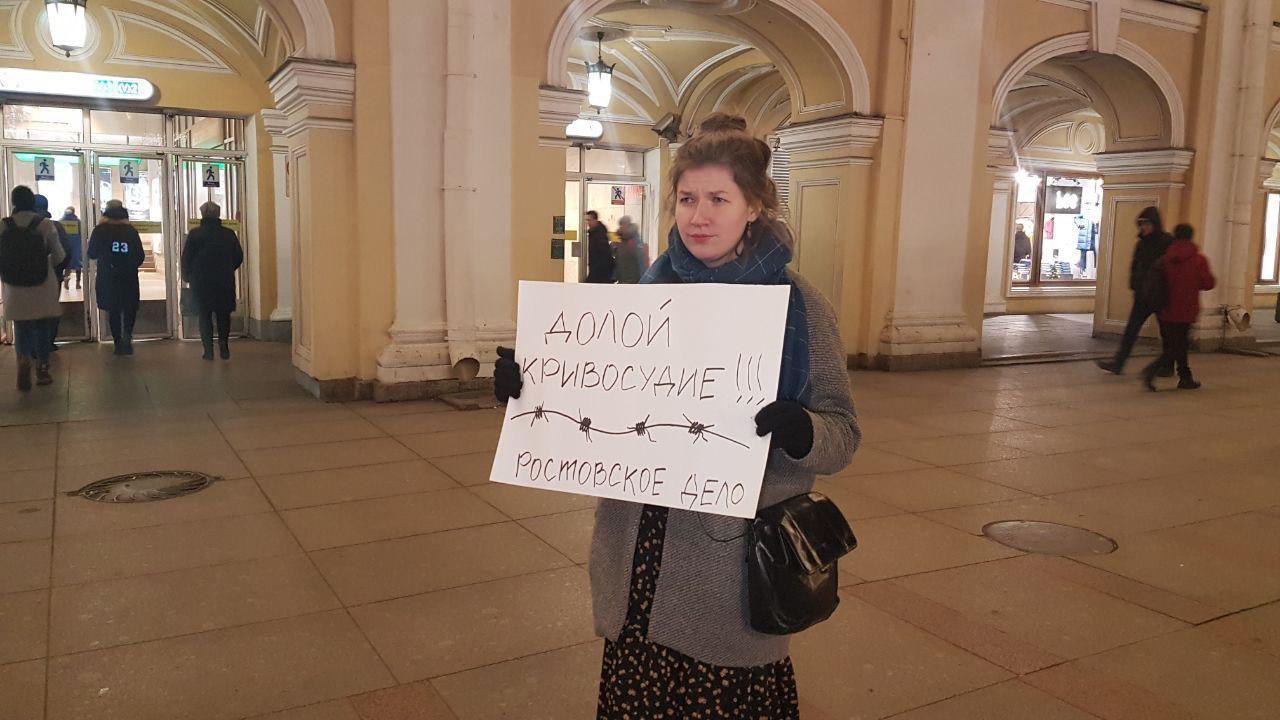 23
ДОЛОЙ
КРИВОСУДИЕ!!!
РОСТОВСКОЕ ДЕЛО